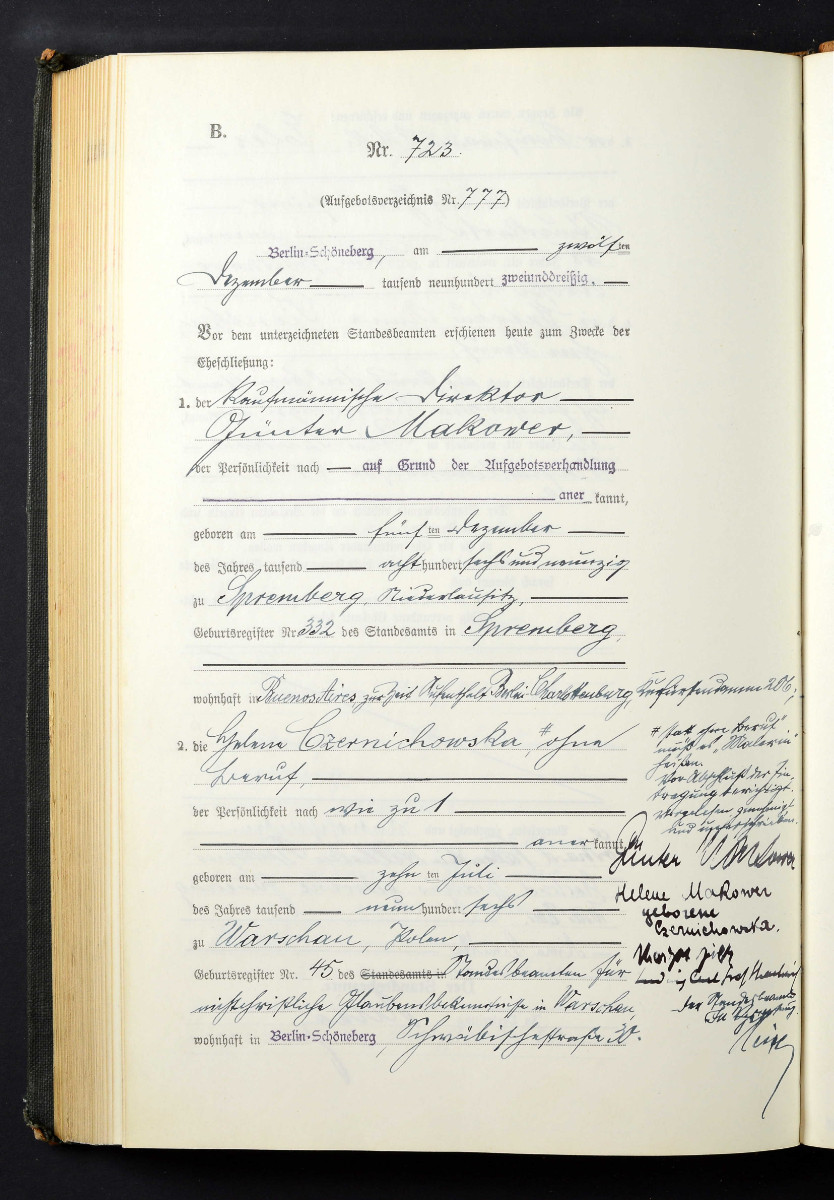 B.
Nr. 723.
(Aufgebotsverzeichnis Nr. 777)
Berlin-Schöneberg, am zwölften
Dezember tausend neunhundert zweiunddreißig.
Vor dem unterzeichneten Standesbeamten erschienen heute zum Zwecke der
Eheschließung:
1. der Kaufmännische Direktor
Günter Makower,
der Persönlichkeit nach — auf Grund der Aufgebotsverhandlung
aner kannt,
geboren am fünften Dezember
des Jahres tausend achthundert sechs und neunzig
zu Spremberg, Niederlausitz,
Geburtsregister Nr. 332 des Standesamts in Spremberg,
wohnhaft in Buenos Aires, zur Zeit Aufenthalt Berlin Charlottenburg, Kurfürstendamm 206;
2. die Helene Czernichowska, # ohne
Beruf,
der Persönlichkeit nach wie zu 1
aner kannt,
geboren am zehnten Juli
des Jahres tausend neunhundert sechs
zu Warschau, Polen,
Geburtsregister Nr. 45 des Standesamts in Standesbeamten für
nichtchristliche Glaubensbekenntnisse in Warschau,
wohnhaft in Berlin-Schöneberg, Schwäbischestraße 30.
# statt "ohne Beruf"
muß es "Malerin"
heißen.
Vor Abschluß der Ein-
tragung berichtigt.
Vorgelesen, genehmigt
und unterschrieben.
Günter Makower
Helene Makower
geborene
Czernichowska.
Der Standesbeamte
In Vertretung